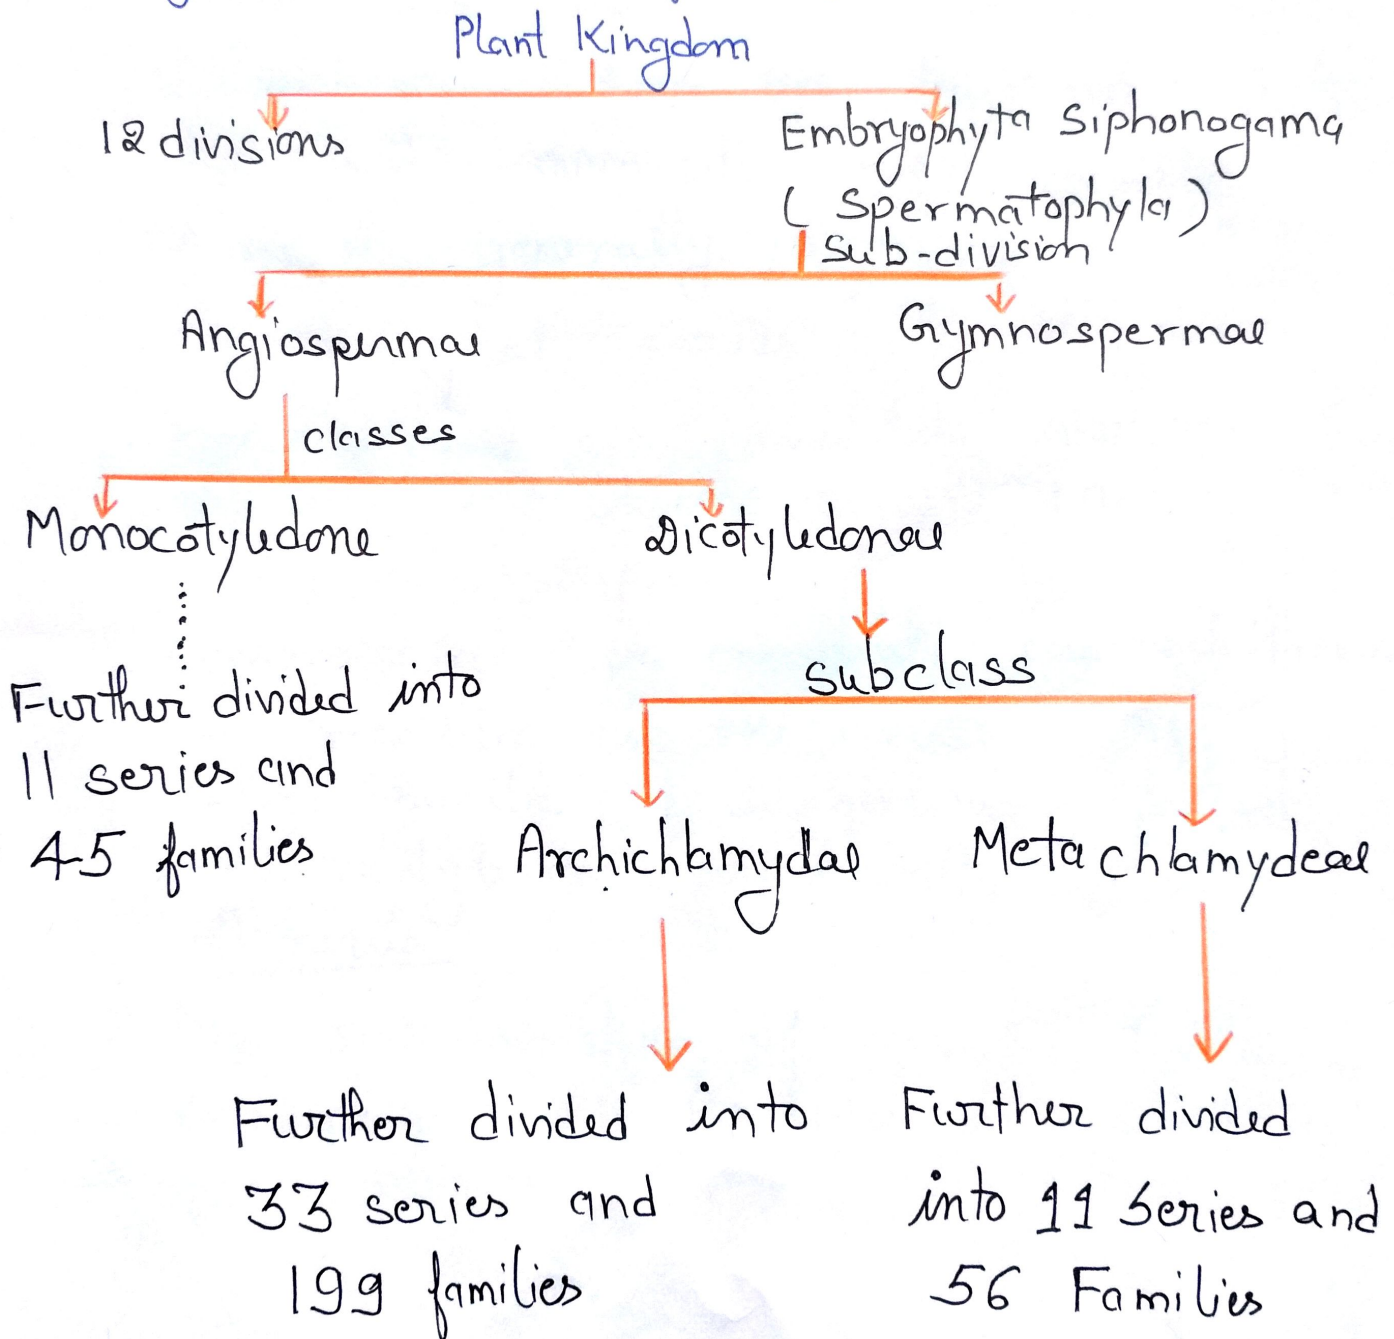 Plant Kingdom
12 divisions
Embryophyta Siphonogama
( Spermatophyla )
Sub-division
Angiospermae
Gymnospermae
classes
Monocotyledone
Dicotyledonae
Subclass
Further divided into
11 series and
45 families
Archichlamydae
Metachlamydeae
Further divided into
33 series and
199 families
Further divided
into 11 Series and
56 Families